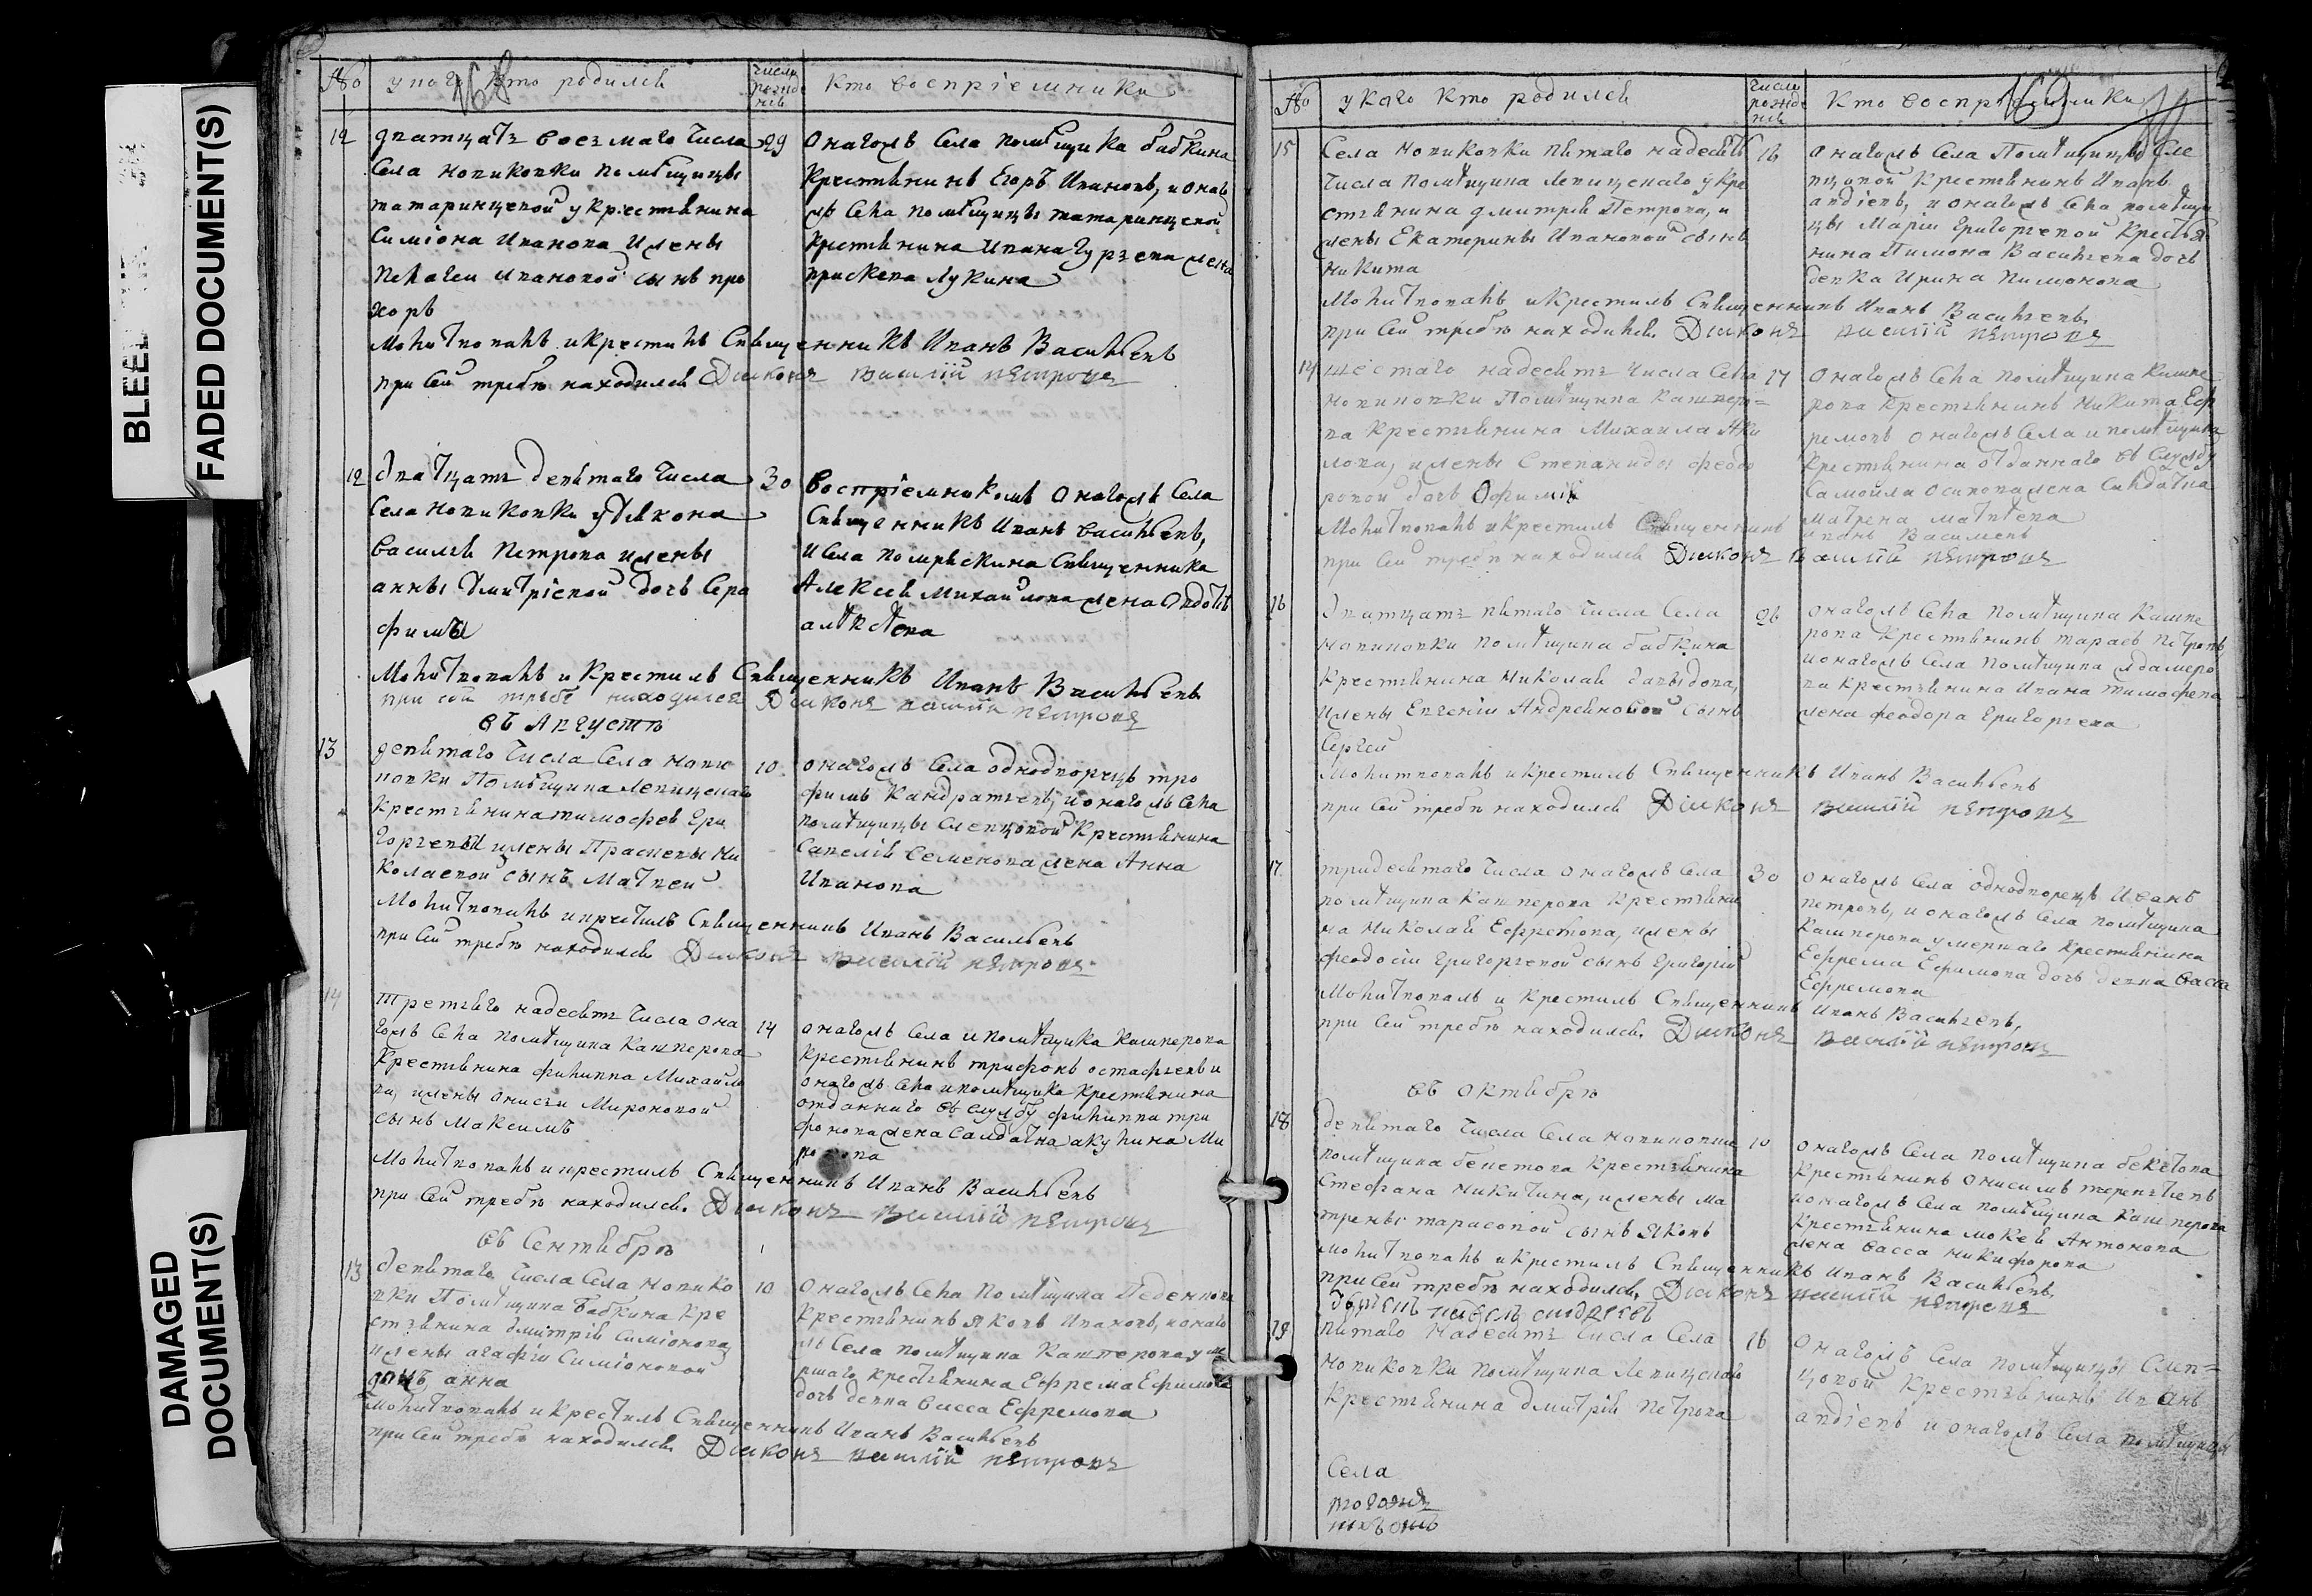 BLEED
FADED DOCUMENT(S)
DAMAGED
DOCUMENT(S)
168
№
у кого кто родился
числа
рожде
нія
кто воспріемники
12
дватцать восмаго числа
29
села Новиковки помѣщицы
Татаринцевой у крестьянина
Симіона Иванова и жены
Пелагеи Ивановой сынъ Про
хоръ
онагожъ села помѣщика Бабкина
крестьянинъ Егоръ Ивановъ, и онаго
жъ села помѣщицы Татаринцевой
крестьянина Ивана Гурьева жена
Прискева Лукина
Молитвовалъ и крестилъ Священникъ Иванъ Васильевъ
при сей требѣ находился Діаконъ Василій Петровъ
12
Дватцать девятаго числа
30
села Новиковки у діякона
Василья Петрова и жены
Анны Дмитріевой дочь Сера
фима
воспріемникомъ онагожъ села
Священникъ Иванъ Васильевъ,
и села священника
Алексея Михайлова жена Овдотья
Молитвовалъ и крестилъ Священникъ Иванъ Васильевъ
при сей требѣ находился Діаконъ Василій Петровъ
въ Августѣ
13
девятаго числа села Нови
10
ковки помѣщика Левицкаго
крестьянина Тимофея Гри
горьева и жены Прасковьи Ни
колаевой сынъ Матвей
онагожъ села однодворецъ Тро
фимъ Кандратьевъ, и онагожъ села
помѣщицы Слепцовой крестьянина
Савелія Семенова жена Анна
Иванова
Молитвовалъ и крестилъ Священникъ Иванъ Васильевъ
при сей требѣ находился Діаконъ Василій Петровъ
14
Третьяго надесять числа она
14
гожъ села помѣщика Кашперова
крестьянина Филиппа Михайло
ва, и жены Онисьи Мироновой
сынъ Максимъ
онагожъ села и помѣщика Кашперова
крестьянинъ Трифонъ Остафьевъ и
онагожъ села и помѣщика крестьянина
отданнаго въ службу Филиппа Три
фонова жена салдатка Акулина Ми
Молитвовалъ и крестилъ Священникъ Иванъ Васильевъ
при сей требѣ находился Діаконъ Василій Петровъ
въ Сентябрѣ
13
девятаго числа села Новико
10
вки помѣщика Бабкина кре
стьянина Дмитрія Симіонова,
и жены Агафьи Симіоновой
дочь Анна
онагожъ села помѣщика
крестьянинъ Яковъ Ивановъ, и онаго
жъ села помѣщика Кашперова уме
ршаго крестьянина Ефрема Ефимова
дочь девка Васса Ефремова
Молитвовалъ и крестилъ Священникъ Иванъ Васильевъ
при сей требѣ находился Діаконъ Василій Петровъ
169
№
у кого кто родился
числа
рожде
нія
кто воспріемники
15
Села Новиковки пятаго надесять
16
числа помѣщика Левицкаго у кре
стьянина Дмитрія Петрова, и
жены Екатерины Ивановой сынъ
Никита
онагожъ села помѣщицы Сле
пцовой крестьянинъ Иванъ
Авдіевъ, и онагожъ села помѣщи
цы Маріи Григорьевой крестья
нина Пимона Васильева дочь
девка Ирина Пимонова
Молитвовалъ и крестилъ Священникъ Иванъ Васильевъ,
при сей требѣ находился Діаконъ Василій Петровъ
14
Шестаго надесять числа села
17
Новиковки помѣщика Кашперо=
ва крестьянина Михаила Яки
мова, и жены Степаниды Федо
ровой дочь Офимія
онагожъ села помѣщика Кашпе
рова крестьянинъ Никита Еф
ремовъ онагожъ села и помѣщика
крестьянина отданнаго въ службу
Самойла Осипова жена салдатка
Матрена Матвева
Молитвовалъ и крестилъ Священникъ Иванъ Васильевъ
при сей требѣ находился Діаконъ Василій Петровъ
16
Дватцать пятаго числа села
26
Новиковки помѣщика Бабкина
крестьянина Николая Давыдова,
и жены Евгеніи Андреяновой сынъ
Сергей
онагожъ села помѣщика Кашпе
рова крестьянинъ Тарасъ Петровъ,
и онагожъ села помѣщика
крестьянина Ивана Тимофева
жена Феодора Григорьева
Молитвовалъ и крестилъ Священникъ Иванъ Васильевъ
при сей требѣ находился Діаконъ Василій Петровъ
17
тридесятаго числа онагожъ села
30
помѣщика Кашперова крестьяни
на Николая Ефремова, и жены
Феодосіи Григорьевой сынъ Григорій
онагожъ села однодворецъ Иванъ
Петровъ, и онагожъ села помѣщика
Кашперова умершаго крестьянина
Ефрема Ефимова дочь девка Васса
Ефремова
Молитвовалъ и крестилъ Священникъ Иванъ Васильевъ,
при сей требѣ находился Діаконъ Василій Петровъ
въ Октябрѣ
18
девятаго числа села Новиковки
10
помѣщика Бекетова крестьянина
Стефана Никитина, и жены Ма
трены Тарасовой сынъ Яковъ
онагожъ села помѣщика Бекетова
крестьянинъ Онисимъ Терентьевъ
и онагожъ села помѣщика Кашперова
крестьянина Мокея Антонова
жена Васса Никифорова
Молитвовалъ и крестилъ Священникъ Иванъ Васильевъ,
при сей требѣ находился Діаконъ Василій Петровъ
19
пятаго надесять числа села
16
Новиковки помѣщика Левицкаго
крестьянина Дмитрія Петрова
онагожъ села помѣщицы Слеп=
цовой крестьянинъ Иванъ
Авдіевъ и онагожъ села помѣщицы
Села